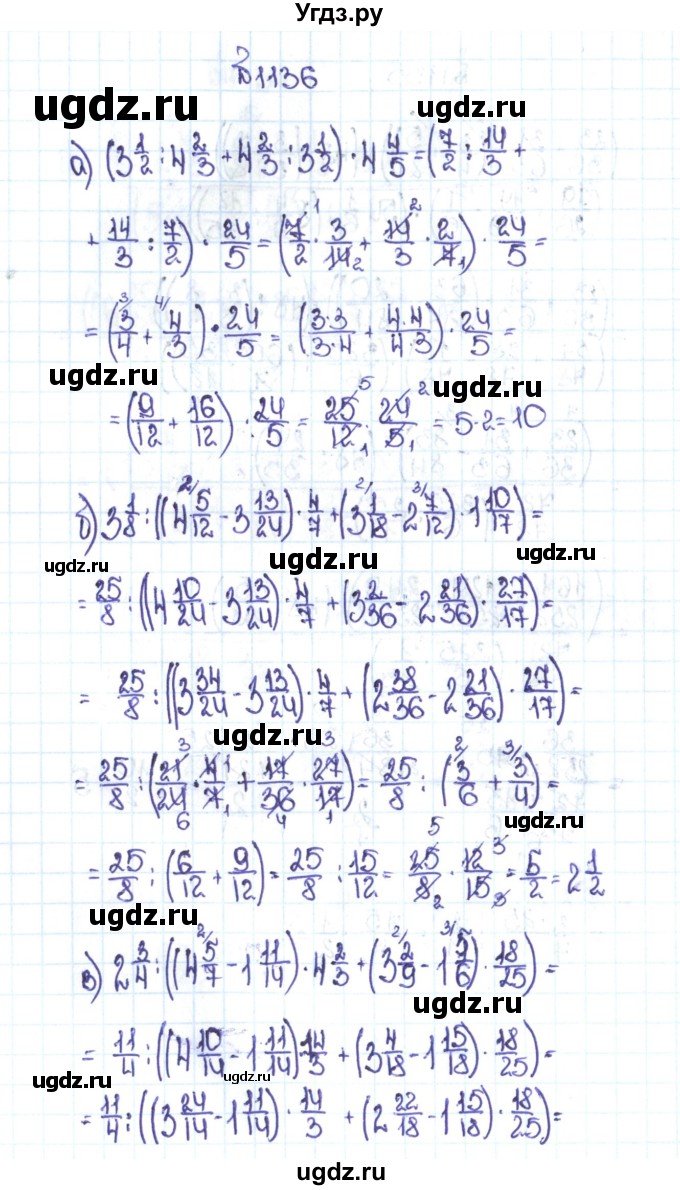 Угдз.ру
№1136
ugdz.ru
а) (3 1/2 : 4 2/3 + 4 2/3 : 3 1/2) · 4 4/5 = (7/2 : 14/3 +
+ 14/3 : 7/2) · 24/5 = (7/2 · 3/14 + 14/3 · 2/7) · 24/5 =
= (3/4 + 4/3) · 24/5 = (3·3/3·4 + 4·4/4·3) · 24/5 =
ugdz.ru ugdz.ru
= (9/12 + 16/12) · 24/5 = 25/12 · 24/5 = 5·2=10
б) 3 1/8 : ((4 5/12 - 3 13/24) · 4/7 + (3 1/18 - 2 7/12) · 1 10/17) =
ugdz.ru ugdz.ru
= 25/8 : ((4 10/24 - 3 13/24) · 4/7 + (3 2/36 - 2 21/36) · 27/17) =
= 25/8 : ((3 34/24 - 3 13/24) · 4/7 + (2 38/36 - 2 21/36) · 27/17) =
ugdz.ru ugdz.ru
= 25/8 : (21/24 · 4/7 + 17/36 · 27/17) = 25/8 : (3/6 + 3/4) =
ugdz.ru
= 25/8 : (6/12 + 9/12) = 25/8 : 15/12 = 25/8 · 12/15 = 5/2 = 2 1/2
ugdz.ru
в) 2 3/4 : ((4 5/7 - 1 11/14) · 4 2/3 + (3 2/9 - 1 5/6) · 18/25) =
ugdz.ru
= 11/4 : ((4 10/14 - 1 11/14) 14/3 + (3 4/18 - 1 15/18) · 18/25) =
ugdz.ru ugdz.ru
= 11/4 : ((3 24/14 - 1 11/14) · 14/3 + (2 22/18 - 1 15/18) · 18/25) =
ugdz.ru